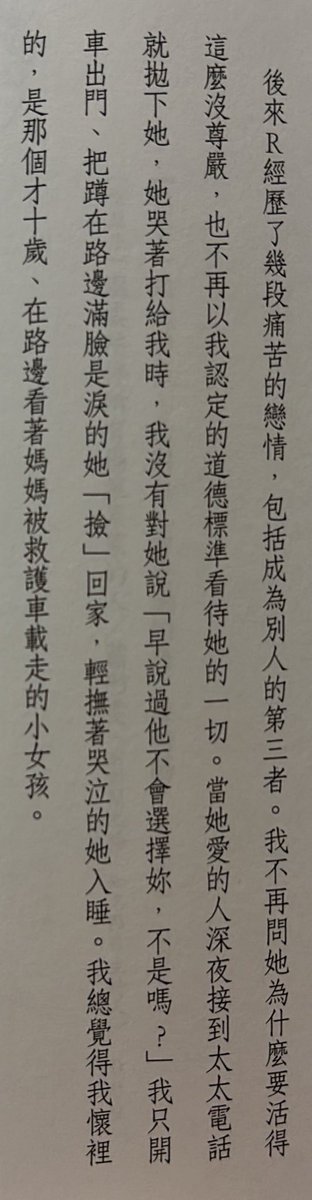 後來R經歷了幾段痛苦的戀情，包括成為別人的第三者。我不再問她為什麼要活得
這麼沒尊嚴，也不再以我認定的道德標準看待她的一切。當她愛的人深夜接到太太電話
就拋下她，她哭著打給我時，我沒有對她說「早說過他不會選擇妳，不是嗎？」我只開
車出門、把蹲在路邊滿臉是淚的她「撿」回家，輕撫著哭泣的她入睡。我總覺得我懷裡
的，是那個才十歲、在路邊看著媽媽被救護車載走的小女孩。